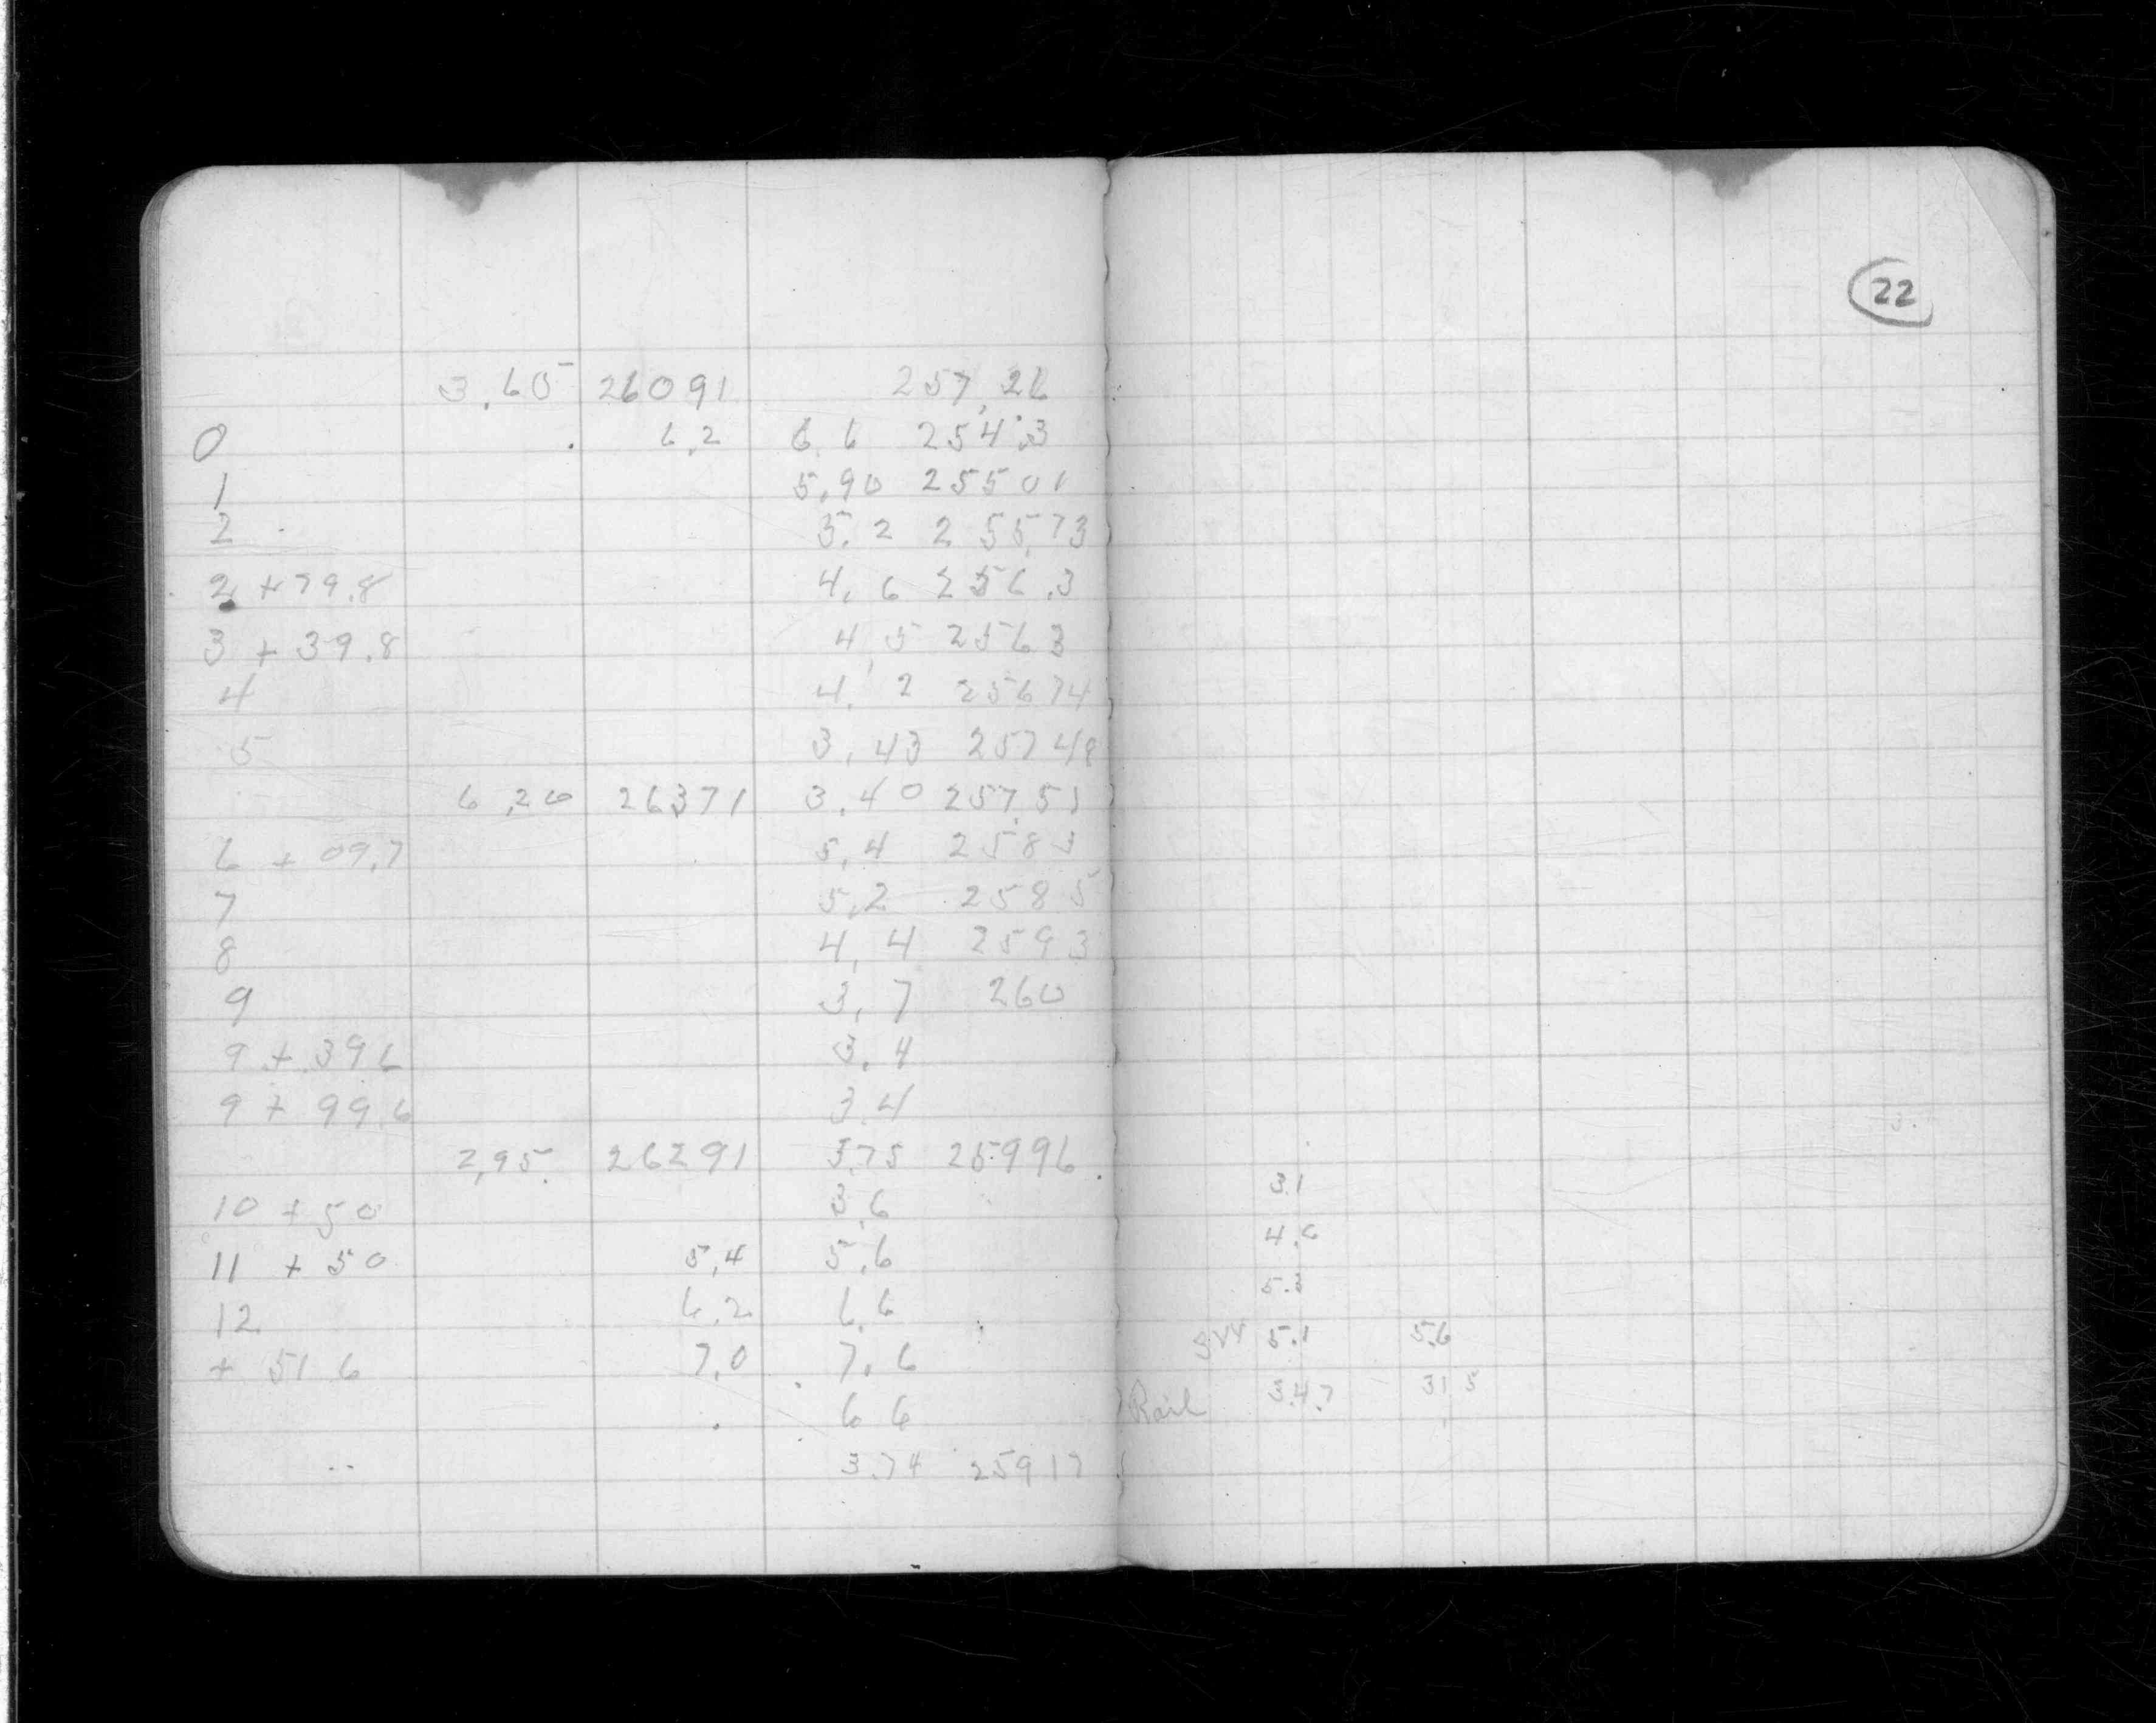 22
3.65 26091 257.26
0 6.2 6.6 254.3
1 5.90 25501
2 5.2 255.73
2 +79.8 4.6 256.3
3 + 39.8 4.5 2563
4 4.2 25674
5 3.43 25748
6.20 26371 3.40 257.51
6 + 09.7 5.4 2583
7 5.2 2585
8 4.4 2593
9 3.7 260
9 + 396 3.4
9 + 99.6 3.4
2.95 26291 3.75 25996
3.1
10 + 50 3.6
4.6
11 + 50 5.4 5.6
5.3
12 6.2 6.6
5.1 5.6
+ 51 6 7.0 7.6
Rail 3.4.7 31 5
6 6
3.74 25917